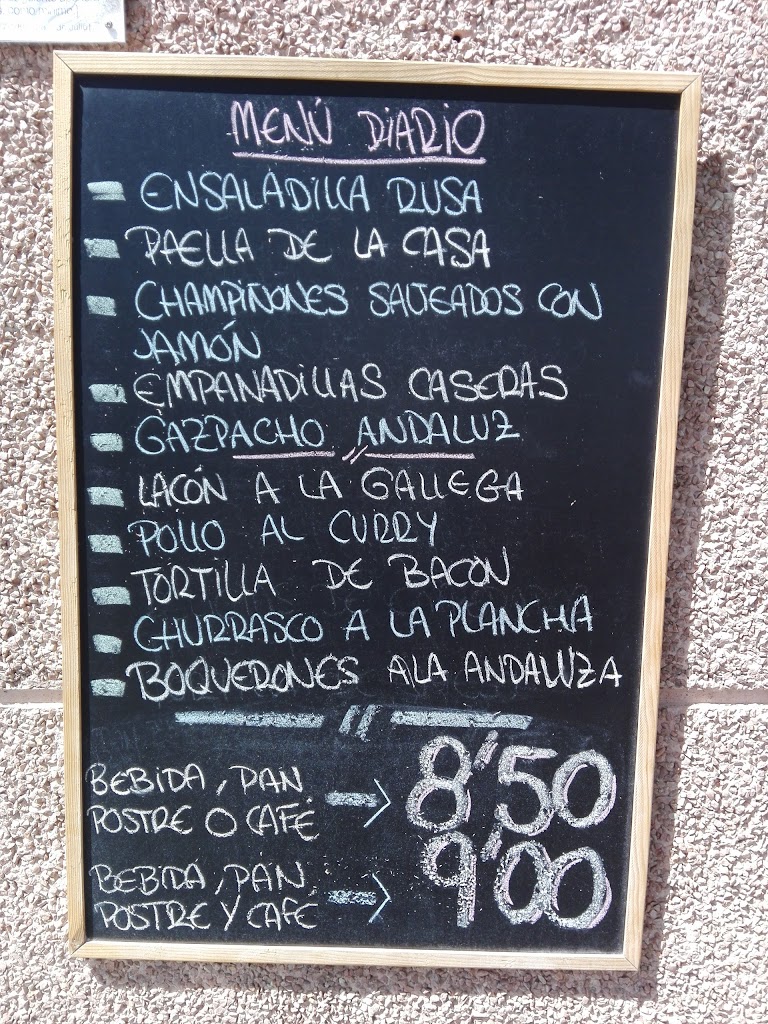 MENÚ DIARIO
ENSALADILLA RUSA
PAELLA DE LA CASA
CHAMPIÑONES SALTEADOS CON
JAMÓN
EMPANADILLAS CASERAS
GAZPACHO ANDALUZ
LACÓN A LA GALLEGA
POLLO AL CURRY
TORTILLA DE BACON
CHURRASCO A LA PLANCHA
BOQUERONES A LA ANDALUZA
BEBIDA, PAN
POSTRE O CAFÉ → 8'50
BEBIDA, PAN
POSTRE Y CAFÉ → 9'00